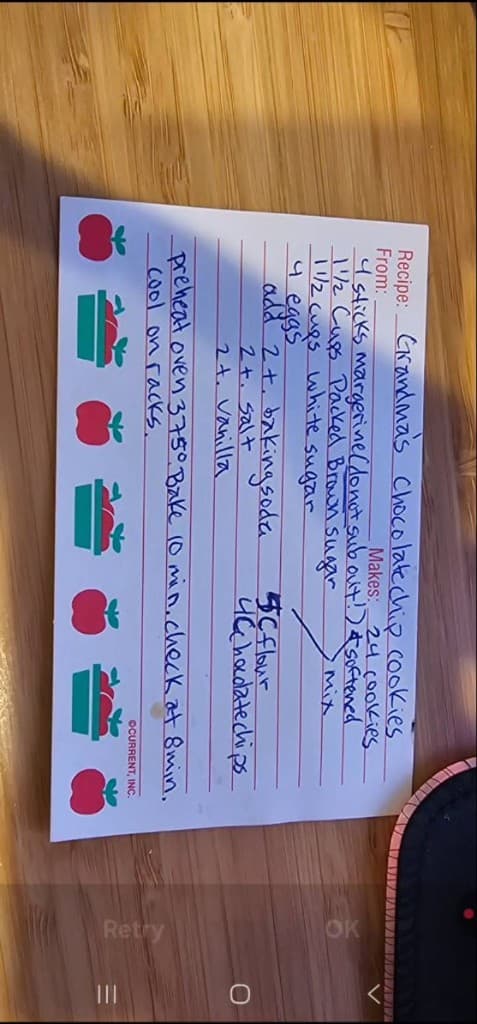 Recipe: Grandma's Chocolate chip cookies
From: Makes: 24 cookies
4 sticks margerine (do not sub out!) *softened
1 1/2 Cups Packed Brown sugar
mix
1 1/2 cups white sugar
4 eggs
add 2 t. baking soda 5 C flour
2 t. salt 4 C chocolate chips
2 t. vanilla
preheat oven 375° Bake 10 min, check at 8 min.
cool on racks.
©CURRENT, INC.
Retry OK